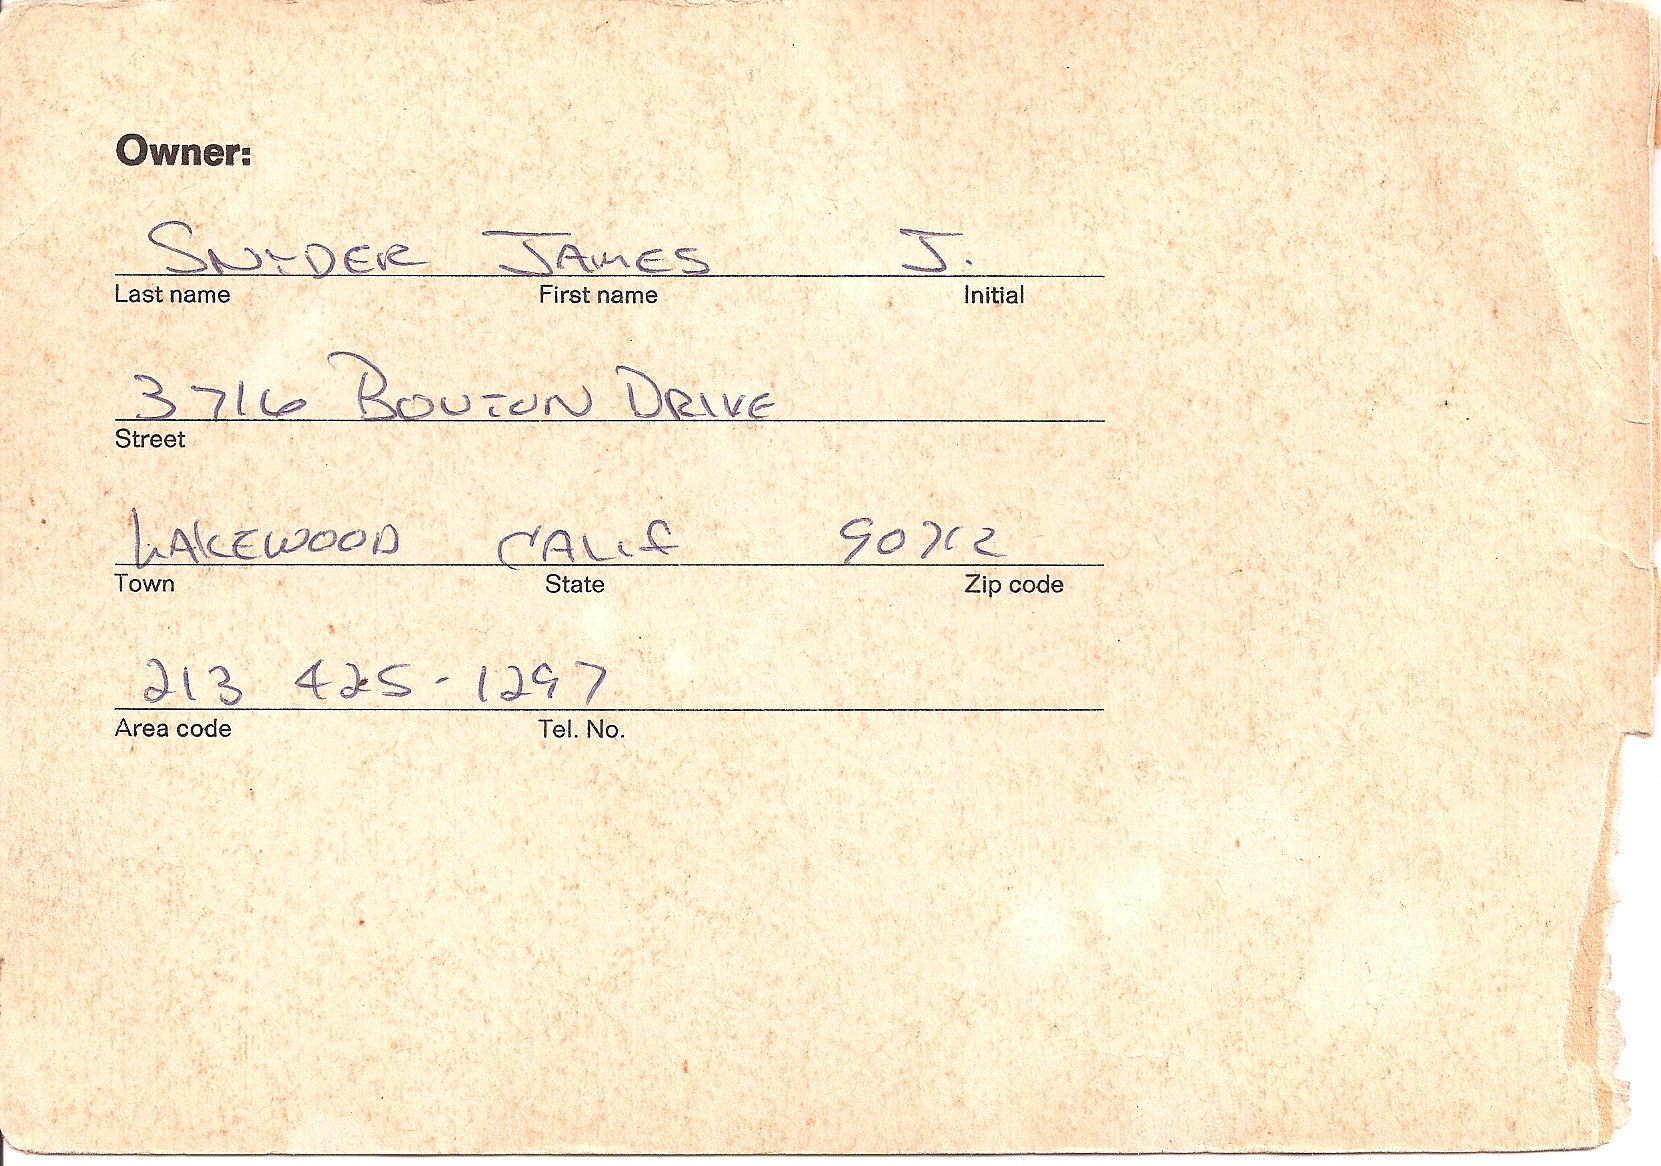 Owner:
SNYDER JAMES J.
Last name First name Initial
3716 BOUTON DRIVE
Street
LAKEWOOD CALIF 90712
Town State Zip code
213 425-1297
Area code Tel. No.